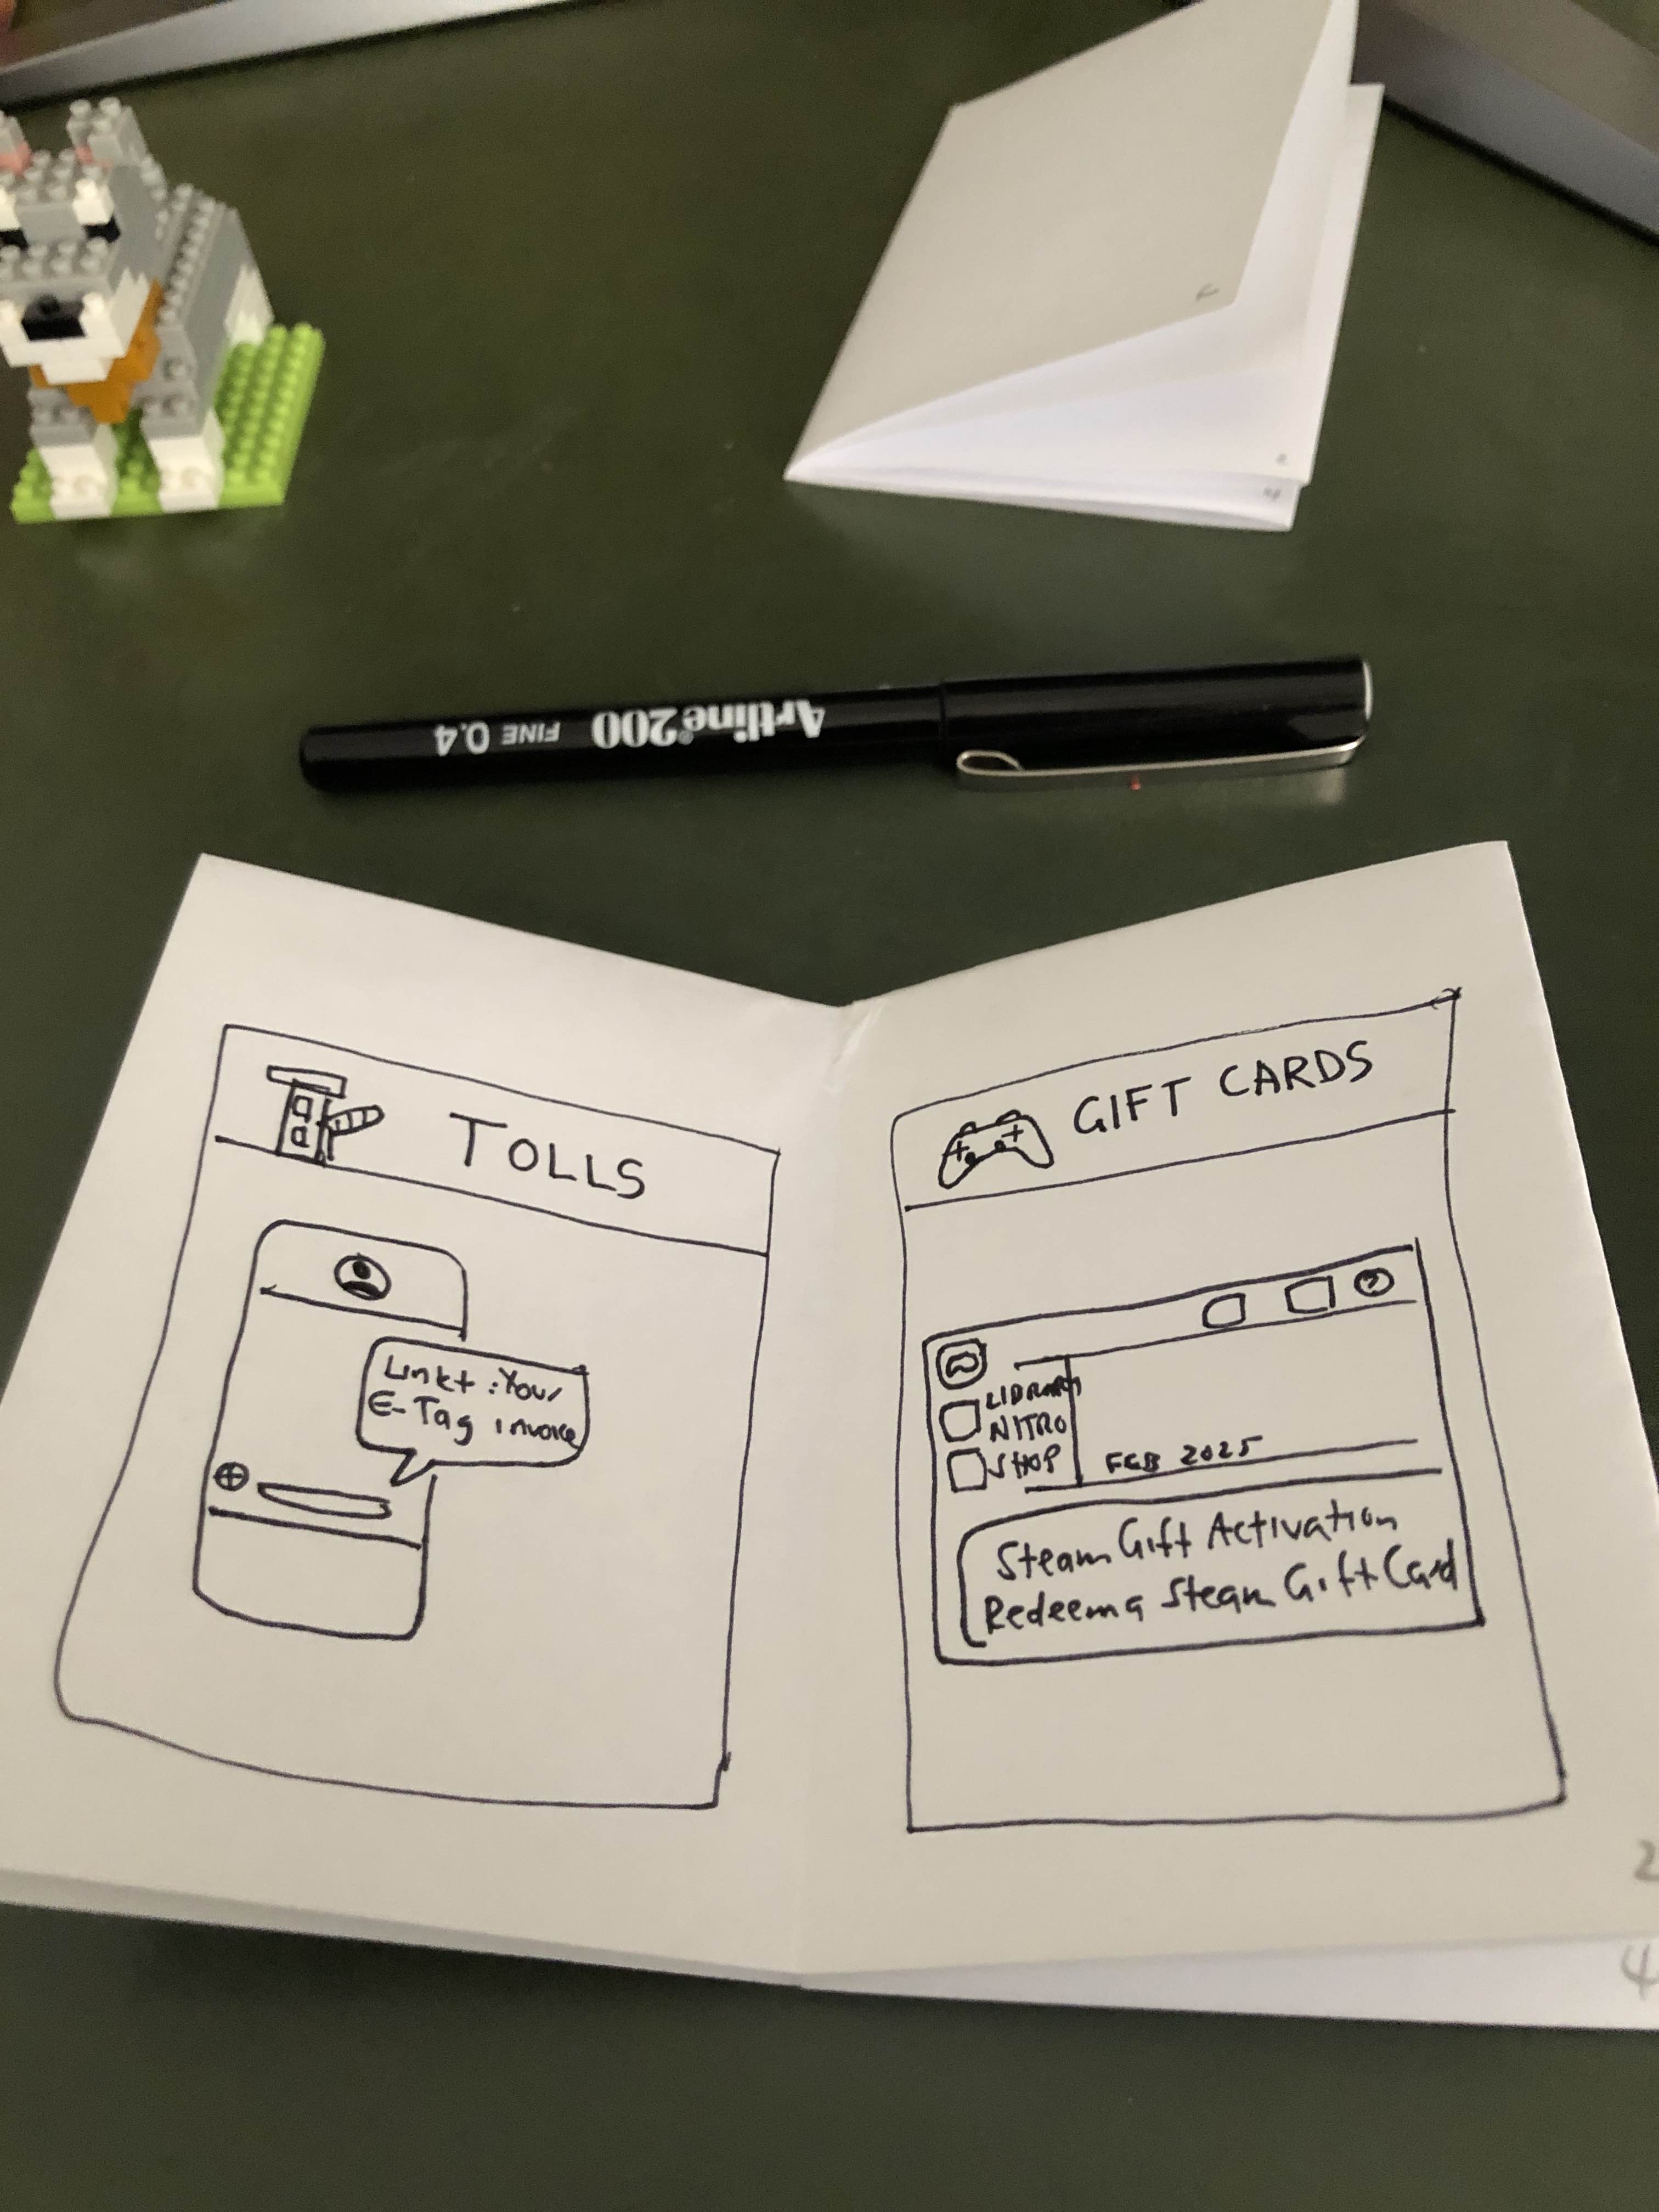 Artline 200 FINE 0.4
TOLLS
Linkt: Your
E-Tag invoice
GIFT CARDS
?
LIBRARY
NITRO
SHOP
FEB 2025
Steam Gift Activation
Redeem a Steam Gift Card
2
4